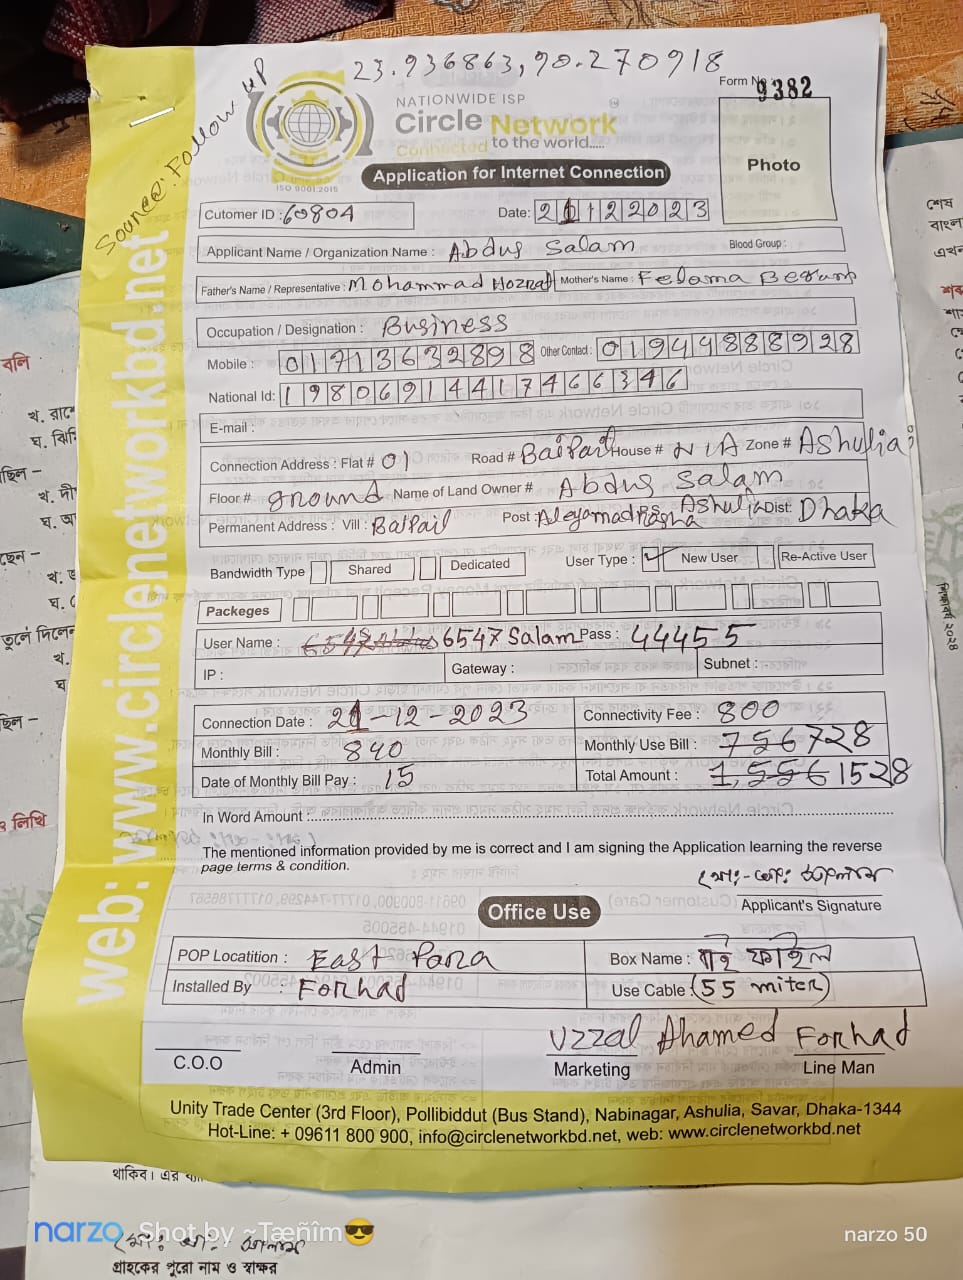 23.936863,90.270918
Source: Follow up
Form No 9382
NATIONWIDE ISP
Circle Network
Connected to the world.....
ISO 9001:2015
Application for Internet Connection
Photo
Cutomer ID : 60804
Date: 21122023
Applicant Name / Organization Name : Abdus Salam
Blood Group :
Father's Name / Representative : Mohammad Hozrat Mother's Name : Felama Begum
Occupation / Designation : Business
Mobile : 01713632898 Other Contact : 01944888928
National Id: 19806914417466346
E-mail :
Connection Address : Flat # 01 Road # Baipail House # N/A Zone # Ashulia
Floor # ground Name of Land Owner # Abdus Salam
Permanent Address : Vill : Baipail Post : Ashulia Dist: Dhaka
Bandwidth Type Shared Dedicated User Type : New User Re-Active User
Packeges
User Name : 6547Salam Pass : 44455
IP : Gateway : Subnet :
Connection Date : 21-12-2023 Connectivity Fee : 800
Monthly Bill : 840 Monthly Use Bill : 756 728
Date of Monthly Bill Pay : 15 Total Amount : 1,556 1528
In Word Amount :
The mentioned information provided by me is correct and I am signing the Application learning the reverse
page terms & condition.
Applicant's Signature
Office Use
POP Locatition : East Para Box Name : বাই ফাইল
Installed By : Forhad Use Cable : (55 miter)
Uzzal Ahamed Forhad
C.O.O Admin Marketing Line Man
Unity Trade Center (3rd Floor), Pollibiddut (Bus Stand), Nabinagar, Ashulia, Savar, Dhaka-1344
Hot-Line: + 09611 800 900, info@circlenetworkbd.net, web: www.circlenetworkbd.net
web: www.circlenetworkbd.net
থাকিব।
narzo Shot by ~Tæñîm😎
narzo 50
গ্রাহকের পুরো নাম ও স্বাক্ষর
শেষ
বাংলা
এখন
খ. রাে
ঘ. ঝিঁ
ছিল –
খ. দী
ছেন –
তুলে দিলেন
ছিল –
লিখি